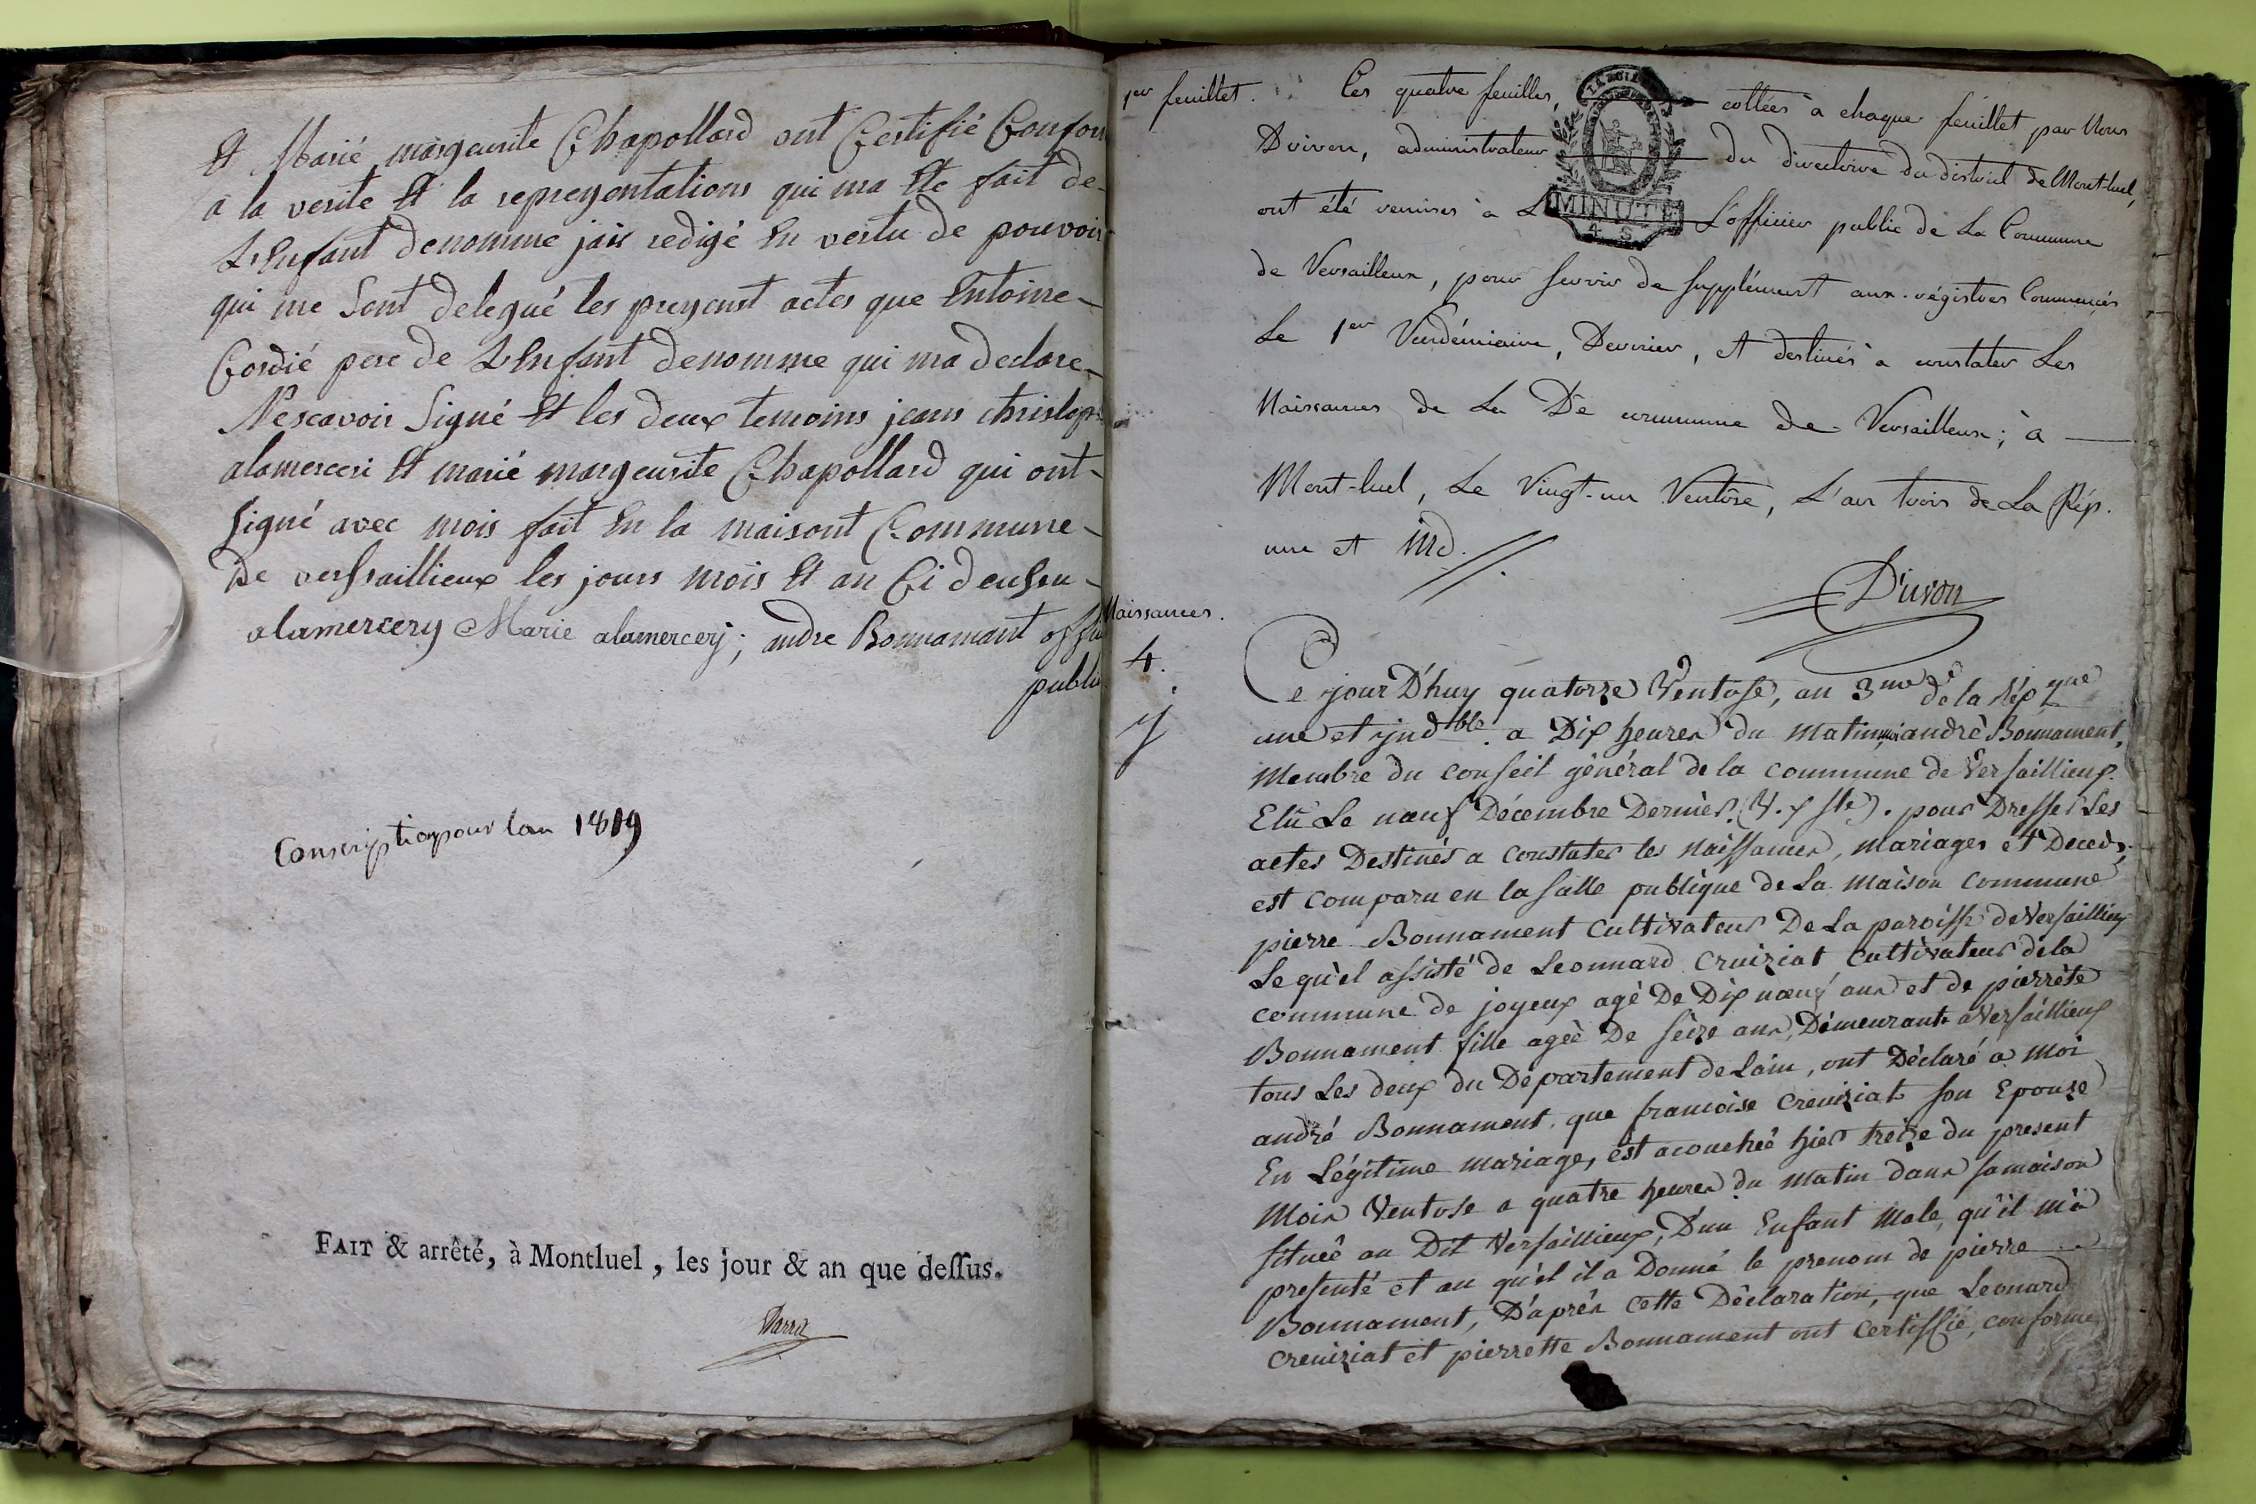 Et Marié margeurite Chapollard ont Certifié Confor
a la verite Et la repreyentations qui ma Ete fait de-
L'Enfant denomme jais redigé En vertu de pouvoir
qui me Sont delegué les preyenst actes que Entoine-
Cordié pere de L'Enfant denomme qui ma declare-
Nescavoir Signé Et les deux temoins jeans christop
alamerceri Et marié margeurite Chapollard qui ont-
Signé avec mois fait En la maisont Commune-
De versaillieux les jours mois Et an Ci deusu-
alamercery Marie alamercerÿ; andre Bonnamant offi
public
Conscription pour lan 1819
FAIT & arrêté, à Montluel, les jour & an que dessus.
1er feuillet.
Ces quatre feuilles, cottées à chaque feuillet par Nous
administrateur du directoire du district de Mont-luel,
ont été remises à L'officier public de La Commune
de Versailleux, pour servir de supplément aux régistres Commencés
Le 1er Vendémiaire, Dernier, et destinés à constater Les
Naissances de La De commune de Versailleux; à
Mont-luel, Le Vingt-un Ventôse, L'an trois de La Rép.
une et ind.
LA LOI
MINUTE
4 S
Naissances.
4.
Ce jour D'huy quatorze Ventose, an 3me de la Répque
une et jndble. a Dix heures du Matin, moi andrè Bonnament,
Membre du conseil général de la commune de Versaillieux.
Elu Le nœuf Décembre Dernier. (V. y stle). pour Dresser Les
actes Destinés a constater les Naissances, mariages et Deceds,
est comparu en la salle publique de La maison commune
pierre Bonnament cultivateur De La paroisse de Versaillieux
Le quèl assisté de Leonnard Cruiziat cultivateur de la
commune de joyeux agè De Dix nœuf ans et de pierrète
Bonnament fille ageè De seize ans, Demeurants a Versaillieux
tous Les deux du Département de Lain, ont Déclaré a Moi
andré Bonnament, que francoise Creuiziat son Epouse
En Légitime mariage, est acouchée hier treize du present
Mois Ventose a quatre heures du Matin dans sa maison
situeê au Dit Versaillieux, D'un Enfant Male, qu'il m'à
presenté et au quèl il a Donné le prenom de pierre
Bonnament, D'après cette Déclaration, que Leonard
creuiziat et pierrette Bonnament ont certiffié, conforme